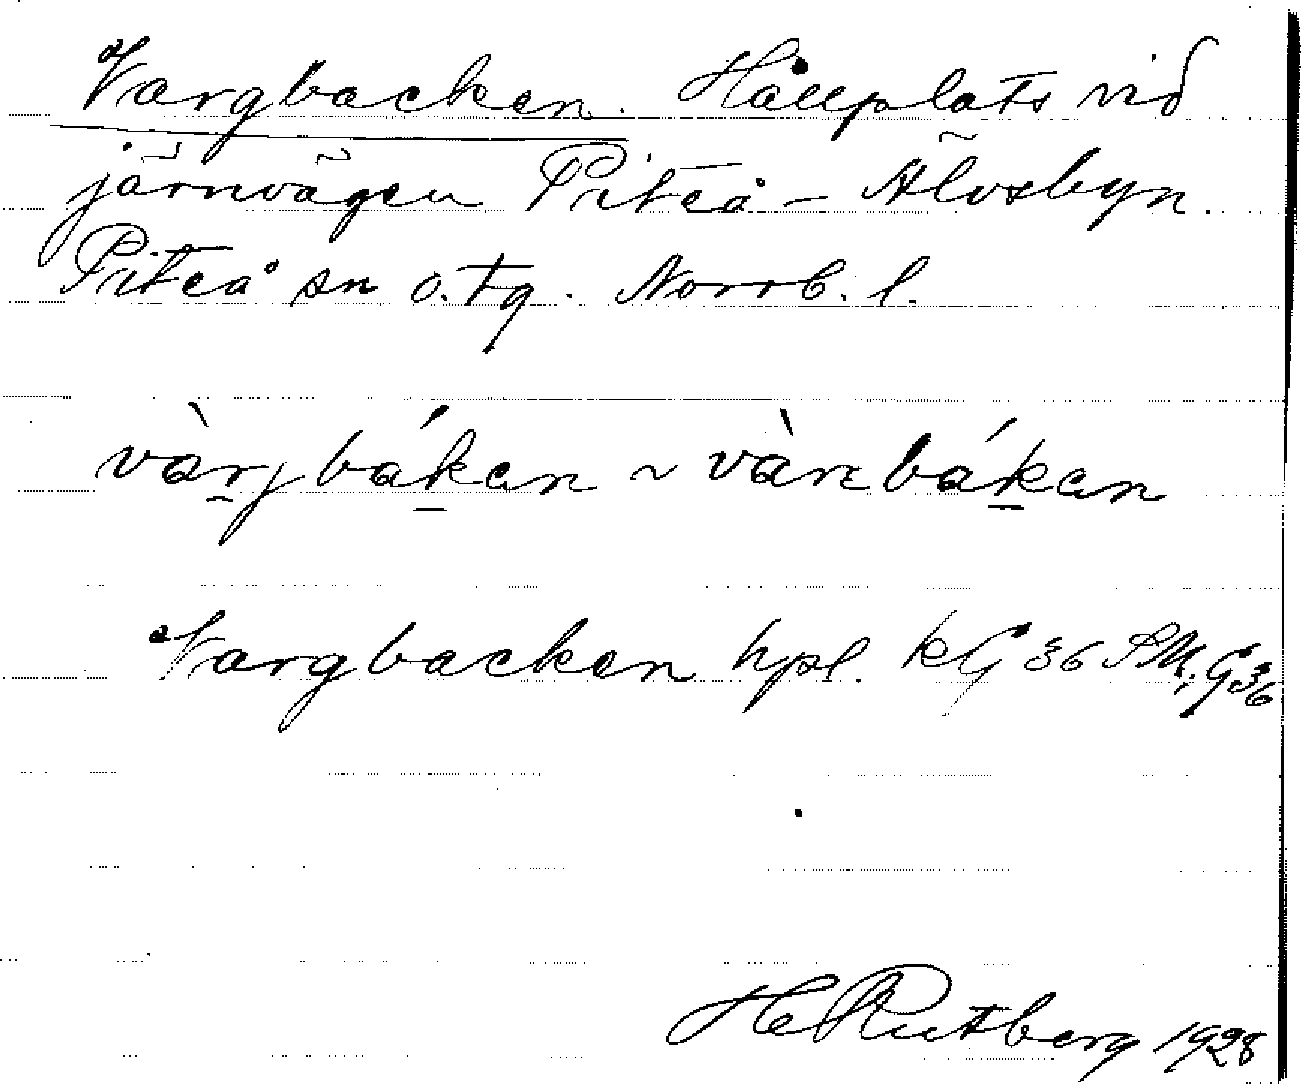 Vargbacken. Hållplats vid
järnvägen Piteå - Älvsbyn.
Piteå sn o. tg. Norrb. l.
vàrjbákan ~ vàrεbákan
Vargbacken hpl. kG 36 SM; G36
H Rutberg 1928